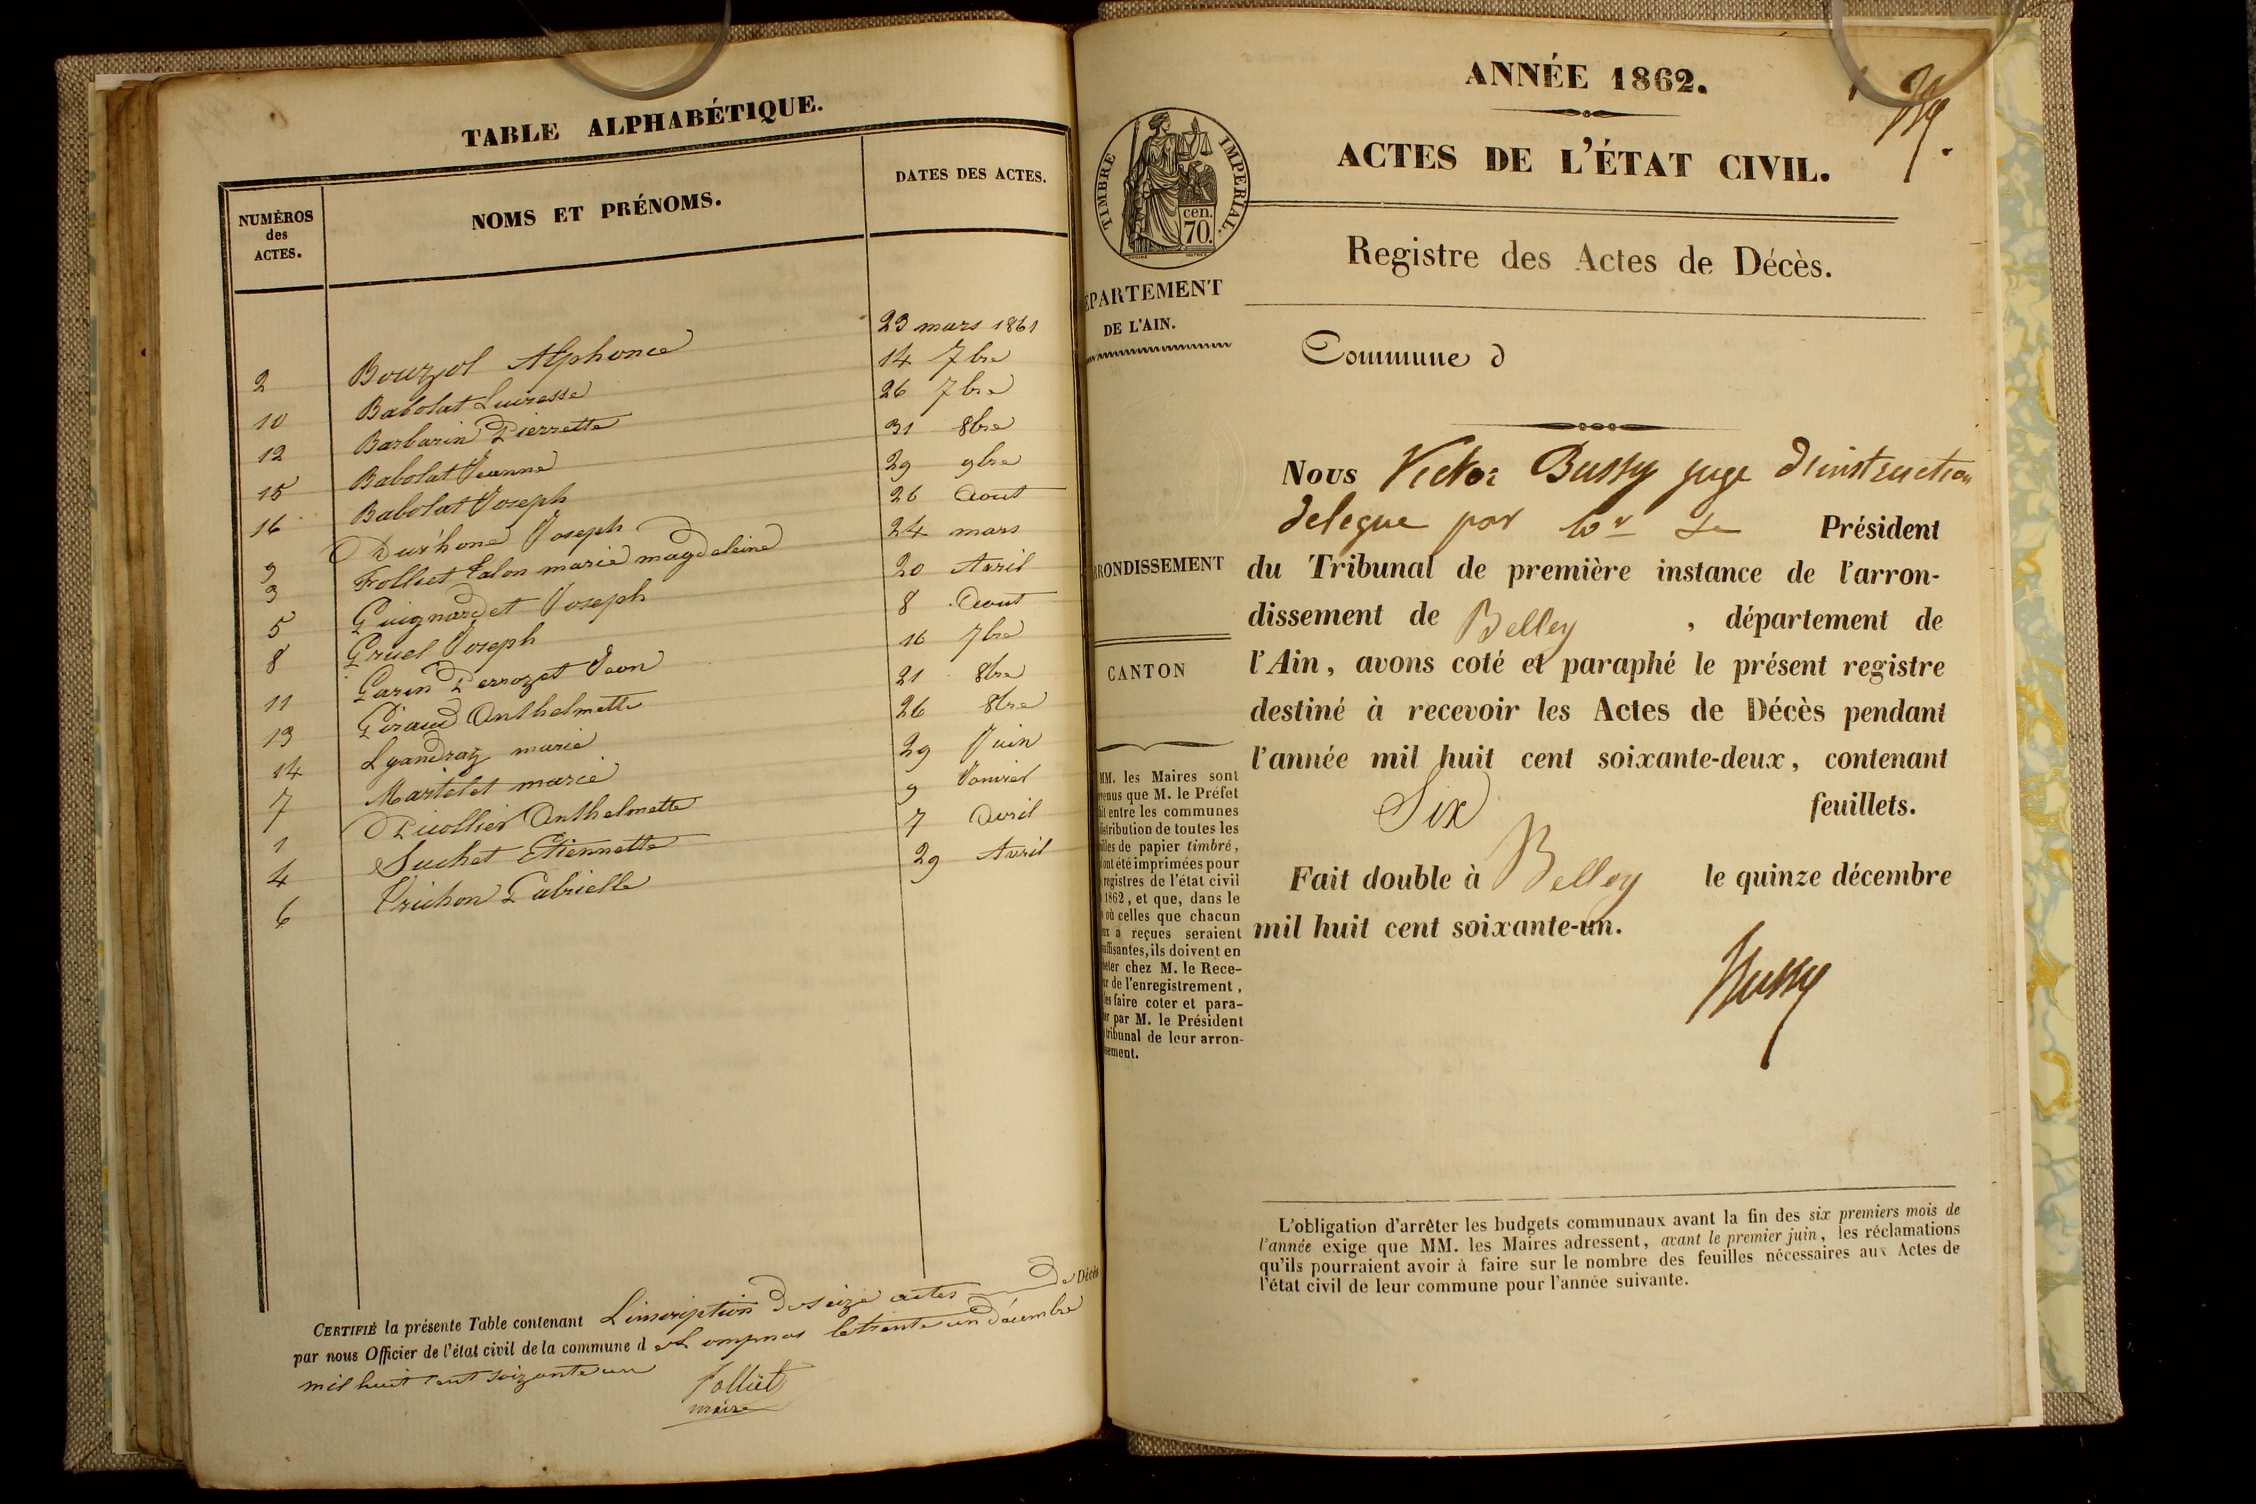 TABLE ALPHABÉTIQUE.
NUMÉROS des ACTES.
NOMS ET PRÉNOMS.
DATES DES ACTES.
2 Bouzol Alphonce 23 mars 1861
10 Babolat 14 7bre
12 Barbarin Pierrette 26 7bre
15 Babolat Jeanne 31 8bre
16 Babolat Joseph 29 9bre
9 Joseph 26 Aout
3 Folliet Talon marie magdeleine 24 mars
5 Guignardet Joseph 20 Avril
8 Gruel Joseph 8 Aout
11 Garin Perrozet Jean 16 7bre
13 Giraud Anthelmette 21 8bre
14 Lyandraz marie 26 8bre
7 Martelet marie 29 Juin
1 Picollier Anthelmette 9 Janvier
4 Suchet Etiennette 7 Avril
6 Trichon Gabrielle 29 Avril
CERTIFIÉ la présente Table contenant L'inscription de seize actes de Décès
par nous Officier de l'état civil de la commune d Lompnas le trente un décembre
mil huit cent soixante un
Folliet
maire
ANNÉE 1862.
1
ACTES DE L'ÉTAT CIVIL.
TIMBRE IMPERIAL.
cen.
70.
Registre des Actes de Décès.
EPARTEMENT
DE L'AIN.
Commune d
RRONDISSEMENT
CANTON
MM. les Maires sont
venus que M. le Préfet
ait entre les communes
istribution de toutes les
illes de papier timbré,
ont été imprimées pour
registres de l'état civil
1862, et que, dans le
où celles que chacun
ux a reçues seraient
uffisantes, ils doivent en
heter chez M. le Rece-
ur de l'enregistrement,
les faire coter et para-
er par M. le Président
tribunal de leur arron-
sement.
Nous Victor Bussy juge d'instruction
delegue par Mr le Président
du Tribunal de première instance de l'arron-
dissement de Belley, département de
l'Ain, avons coté et paraphé le présent registre
destiné à recevoir les Actes de Décès pendant
l'année mil huit cent soixante-deux, contenant
Six feuillets.
Fait double à Belley le quinze décembre
mil huit cent soixante-un.
Bussy
L'obligation d'arrêter les budgets communaux avant la fin des six premiers mois de
l'année exige que MM. les Maires adressent, avant le premier juin, les réclamations
qu'ils pourraient avoir à faire sur le nombre des feuilles nécessaires aux Actes de
l'état civil de leur commune pour l'année suivante.